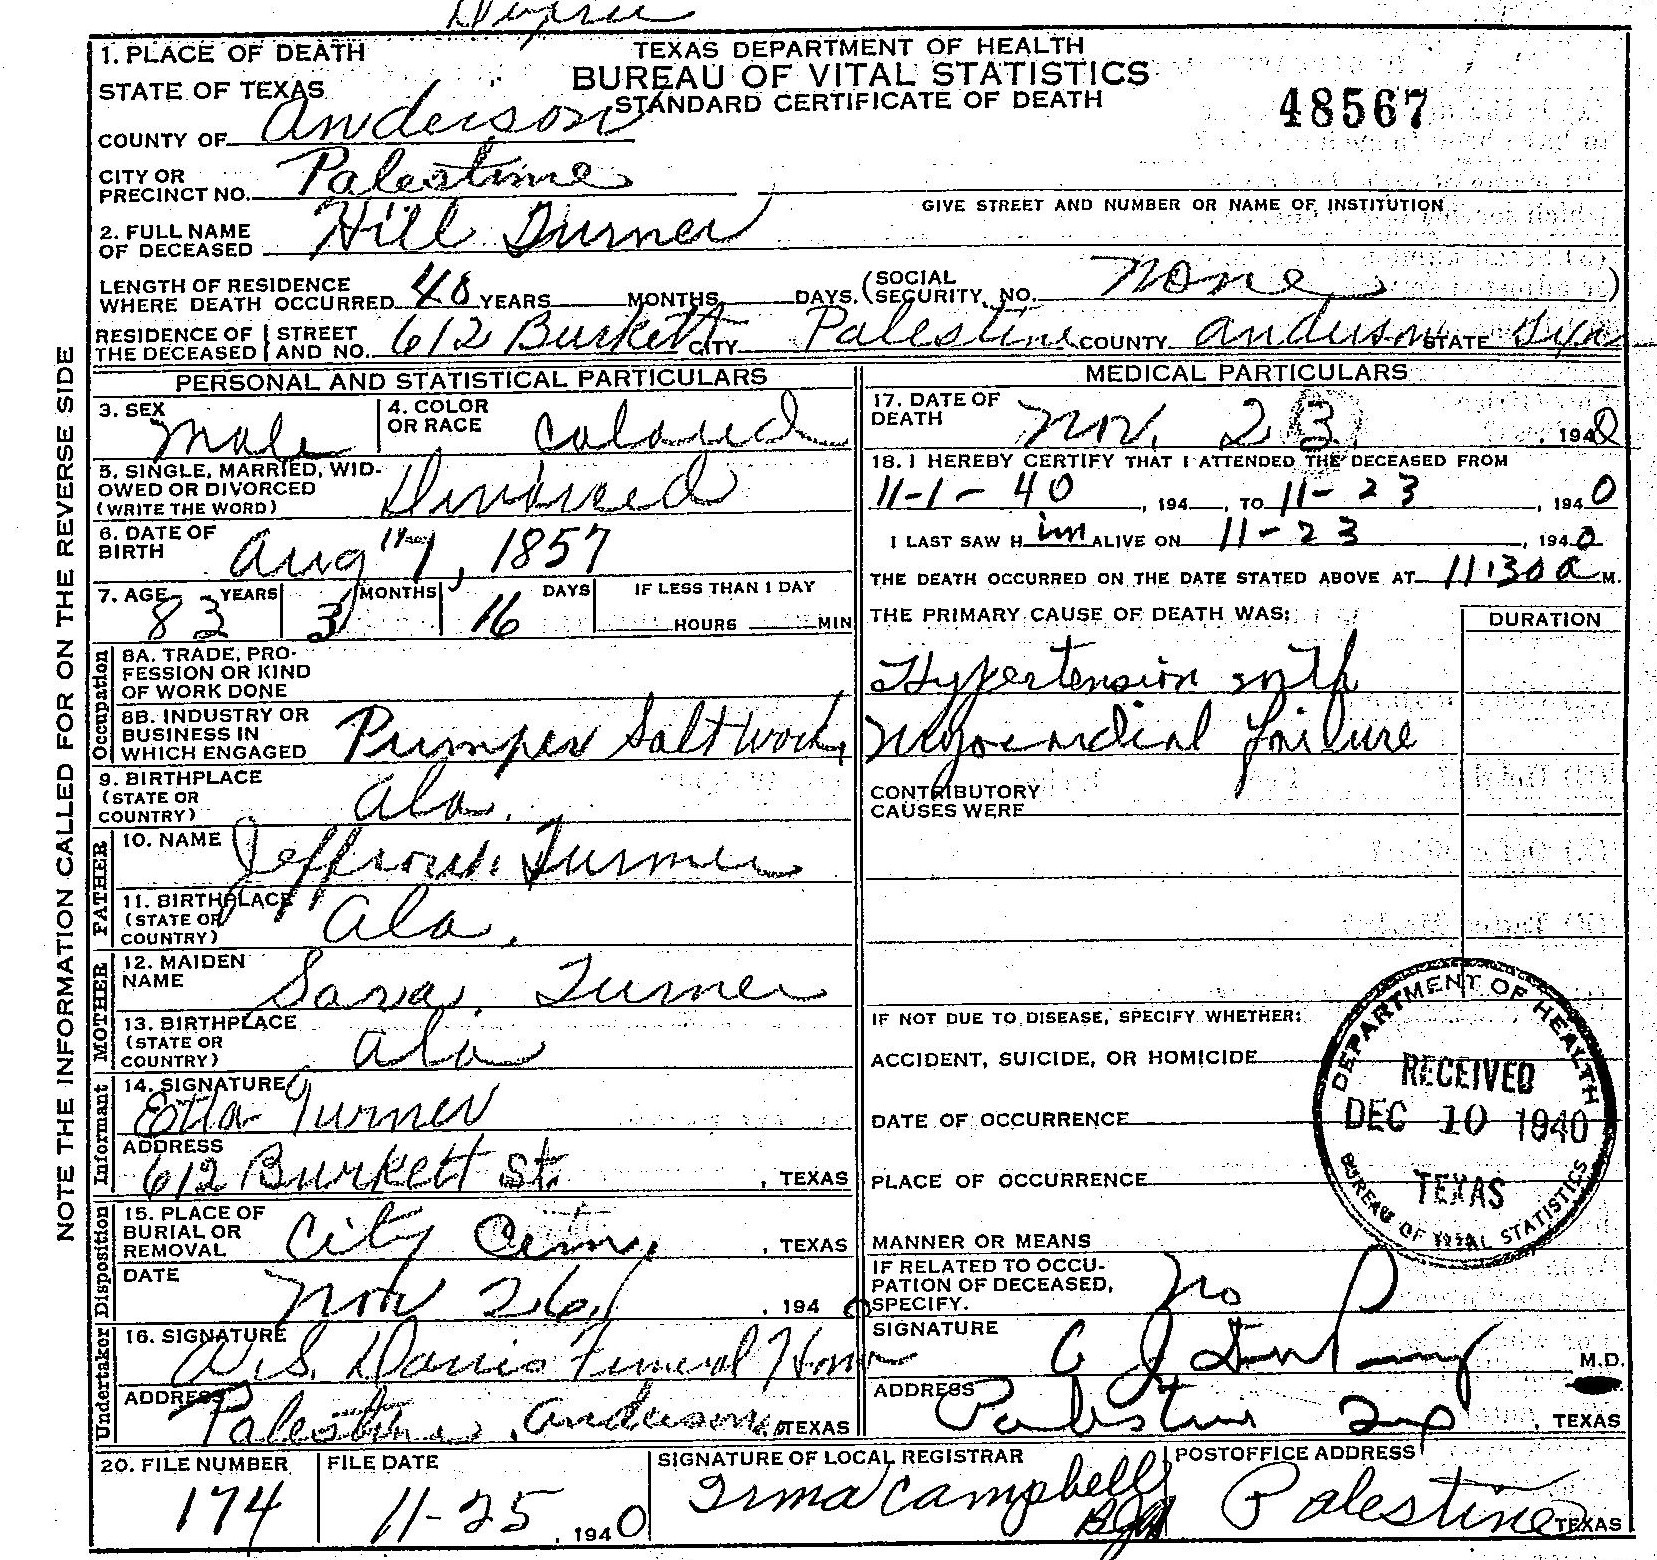 1. PLACE OF DEATH
STATE OF TEXAS
TEXAS DEPARTMENT OF HEALTH
BUREAU OF VITAL STATISTICS
STANDARD CERTIFICATE OF DEATH
48567
COUNTY OF Anderson
CITY OR PRECINCT NO. Palestine
GIVE STREET AND NUMBER OR NAME OF INSTITUTION
2. FULL NAME OF DECEASED Hill Turner
LENGTH OF RESIDENCE WHERE DEATH OCCURRED 40 YEARS MONTHS DAYS. (SOCIAL SECURITY NO. None )
RESIDENCE OF THE DECEASED STREET AND NO. 612 Burkett CITY Palestine COUNTY Anderson STATE
PERSONAL AND STATISTICAL PARTICULARS
3. SEX Male 4. COLOR OR RACE Colored
5. SINGLE, MARRIED, WIDOWED OR DIVORCED (WRITE THE WORD) Divorced
6. DATE OF BIRTH Aug 7, 1857
7. AGE 83 YEARS 3 MONTHS 16 DAYS IF LESS THAN 1 DAY HOURS MIN
Occupation
8A. TRADE, PROFESSION OR KIND OF WORK DONE
8B. INDUSTRY OR BUSINESS IN WHICH ENGAGED Pumper Salt Works
9. BIRTHPLACE (STATE OR COUNTRY) Ala.
FATHER
10. NAME Turner
11. BIRTHPLACE (STATE OR COUNTRY) Ala.
MOTHER
12. MAIDEN NAME Sara Turner
13. BIRTHPLACE (STATE OR COUNTRY) Ala
Informant
14. SIGNATURE Etta Turner
ADDRESS 612 Burkett St. , TEXAS
Disposition
15. PLACE OF BURIAL OR REMOVAL City Cem. , TEXAS
DATE Nov 26, , 1940
Undertaker
16. SIGNATURE W.S. Davis Funeral Home
ADDRESS Palestine, Anderson , TEXAS
MEDICAL PARTICULARS
17. DATE OF DEATH Nov. 23 , 1940
18. I HEREBY CERTIFY THAT I ATTENDED THE DECEASED FROM
11-1-40 , 194 , TO 11-23 , 1940
I LAST SAW H im ALIVE ON 11-23 , 1940
THE DEATH OCCURRED ON THE DATE STATED ABOVE AT 11:30 a M.
THE PRIMARY CAUSE OF DEATH WAS: DURATION
Hypertension with
Myocardial failure
CONTRIBUTORY CAUSES WERE
IF NOT DUE TO DISEASE, SPECIFY WHETHER:
ACCIDENT, SUICIDE, OR HOMICIDE
DATE OF OCCURRENCE
PLACE OF OCCURRENCE
MANNER OR MEANS
IF RELATED TO OCCUPATION OF DECEASED, SPECIFY. No
SIGNATURE M.D.
ADDRESS Palestine , TEXAS
DEPARTMENT OF HEALTH
RECEIVED
DEC 10 1940
TEXAS
BUREAU OF VITAL STATISTICS
20. FILE NUMBER 174 FILE DATE 11-25 , 1940 SIGNATURE OF LOCAL REGISTRAR Irma Campbell POSTOFFICE ADDRESS Palestine TEXAS
NOTE THE INFORMATION CALLED FOR ON THE REVERSE SIDE